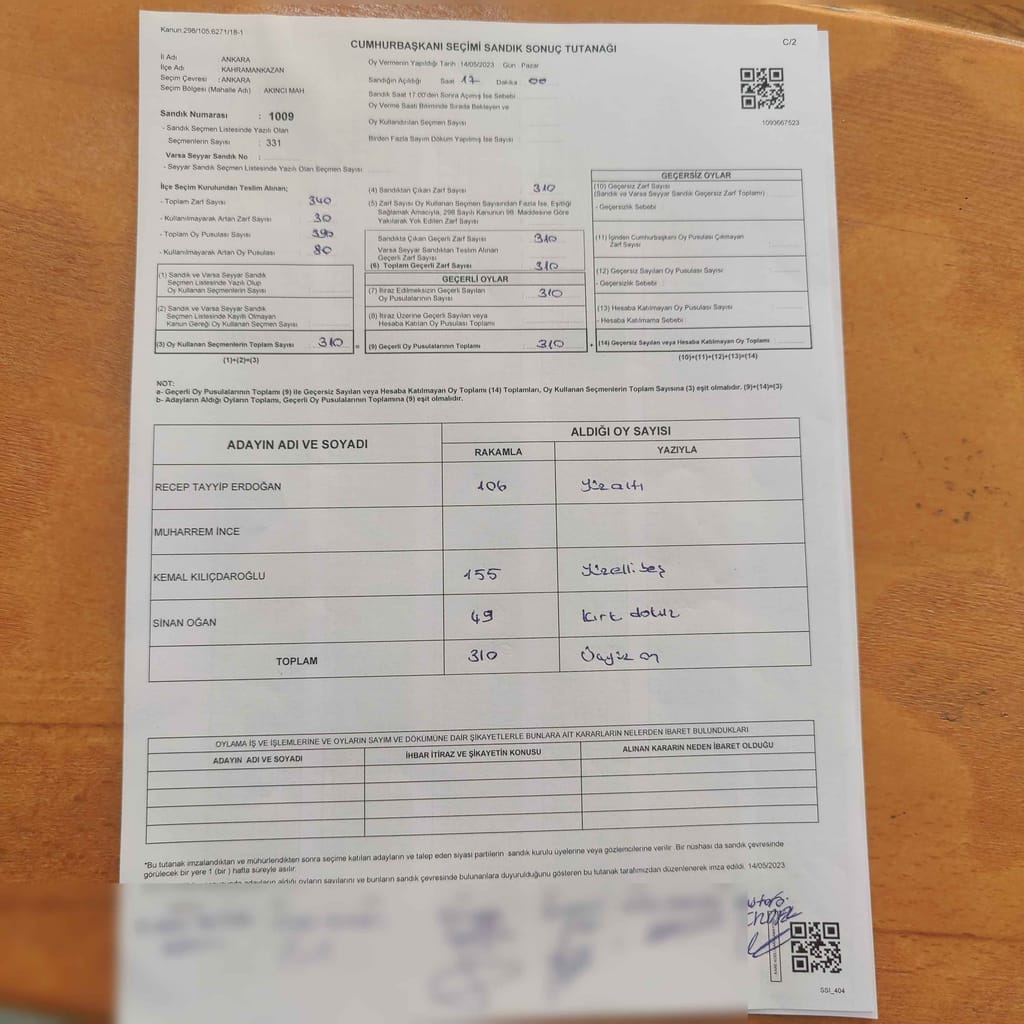 Kanun:298/105.6271/18-1
C/2
CUMHURBAŞKANI SEÇİMİ SANDIK SONUÇ TUTANAĞI
İl Adı : ANKARA
İlçe Adı : KAHRAMANKAZAN
Seçim Çevresi : ANKARA
Seçim Bölgesi (Mahalle Adı) AKINCI MAH
Sandık Numarası : 1009
- Sandık Seçmen Listesinde Yazılı Olan
Seçmenlerin Sayısı : 331
Varsa Seyyar Sandık No :
- Seyyar Sandık Seçmen Listesinde Yazılı Olan Seçmen Sayısı
Oy Vermenin Yapıldığı Tarih 14/05/2023 Gün Pazar
Sandığın Açıldığı Saat 17 Dakika 00
Sandık Saat 17:00'den Sonra Açılmış İse Sebebi
Oy Verme Saati Bitiminde Sırada Bekleyen ve
Oy Kullandırılan Seçmen Sayısı
Birden Fazla Sayım Döküm Yapılmış İse Sayısı
1093667523
İlçe Seçim Kurulundan Teslim Alınan;
- Toplam Zarf Sayısı 340
- Kullanılmayarak Artan Zarf Sayısı 30
- Toplam Oy Pusulası Sayısı 390
- Kullanılmayarak Artan Oy Pusulası 80
(1) Sandık ve Varsa Seyyar Sandık
Seçmen Listesinde Yazılı Olup
Oy Kullanan Seçmenlerin Sayısı
(2) Sandık ve Varsa Seyyar Sandık
Seçmen Listesinde Kayıtlı Olmayan
Kanun Gereği Oy Kullanan Seçmen Sayısı
(3) Oy Kullanan Seçmenlerin Toplam Sayısı 310 =
(1)+(2)=(3)
(4) Sandıktan Çıkan Zarf Sayısı 310
(5) Zarf Sayısı Oy Kullanan Seçmen Sayısından Fazla İse, Eşitliği
Sağlamak Amacıyla, 298 Sayılı Kanunun 98. Maddesine Göre
Yakılarak Yok Edilen Zarf Sayısı
Sandıkta Çıkan Geçerli Zarf Sayısı 310
Varsa Seyyar Sandıktan Teslim Alınan
Geçerli Zarf Sayısı
(6) Toplam Geçerli Zarf Sayısı 310
GEÇERLİ OYLAR
(7) İtiraz Edilmeksizin Geçerli Sayılan
Oy Pusulalarının Sayısı 310
(8) İtiraz Üzerine Geçerli Sayılan veya
Hesaba Katılan Oy Pusulası Toplamı
(9) Geçerli Oy Pusulalarının Toplamı 310 +
GEÇERSİZ OYLAR
(10) Geçersiz Zarf Sayısı
(Sandık ve Varsa Seyyar Sandık Geçersiz Zarf Toplamı)
- Geçersizlik Sebebi
(11) İçinden Cumhurbaşkanı Oy Pusulası Çıkmayan
Zarf Sayısı
(12) Geçersiz Sayılan Oy Pusulası Sayısı
- Geçersizlik Sebebi:
(13) Hesaba Katılmayan Oy Pusulası Sayısı
- Hesaba Katılmama Sebebi
(14) Geçersiz Sayılan veya Hesaba Katılmayan Oy Toplamı
(10)+(11)+(12)+(13)=(14)
NOT:
a- Geçerli Oy Pusulalarının Toplamı (9) ile Geçersiz Sayılan veya Hesaba Katılmayan Oy Toplamı (14) Toplamları, Oy Kullanan Seçmenlerin Toplam Sayısına (3) eşit olmalıdır. (9)+(14)=(3)
b- Adayların Aldığı Oyların Toplamı, Geçerli Oy Pusulalarının Toplamına (9) eşit olmalıdır.
ADAYIN ADI VE SOYADI
ALDIĞI OY SAYISI
RAKAMLA YAZIYLA
RECEP TAYYİP ERDOĞAN 106 Yüzaltı
MUHARREM İNCE
KEMAL KILIÇDAROĞLU 155 Yüzellibeş
SİNAN OĞAN 49 Kırk dokuz
TOPLAM 310 Üçyüz on
OYLAMA İŞ VE İŞLEMLERİNE VE OYLARIN SAYIM VE DÖKÜMÜNE DAİR ŞİKAYETLERLE BUNLARA AİT KARARLARIN NELERDEN İBARET BULUNDUKLARI
ADAYIN ADI VE SOYADI İHBAR İTİRAZ VE ŞİKAYETİN KONUSU ALINAN KARARIN NEDEN İBARET OLDUĞU
*Bu tutanak imzalandıktan ve mühürlendikten sonra seçime katılan adayların ve talep eden siyasi partilerin sandık kurulu üyelerine veya gözlemcilerine verilir. Bir nüshası da sandık çevresinde
görülecek bir yere 1 (bir) hafta süreyle asılır.
adayların aldığı oyların sayılarını ve bunların sandık çevresinde bulunanlara duyurulduğunu gösteren bu tutanak tarafımızdan düzenlenerek imza edildi. 14/05/2023
SSİ_404